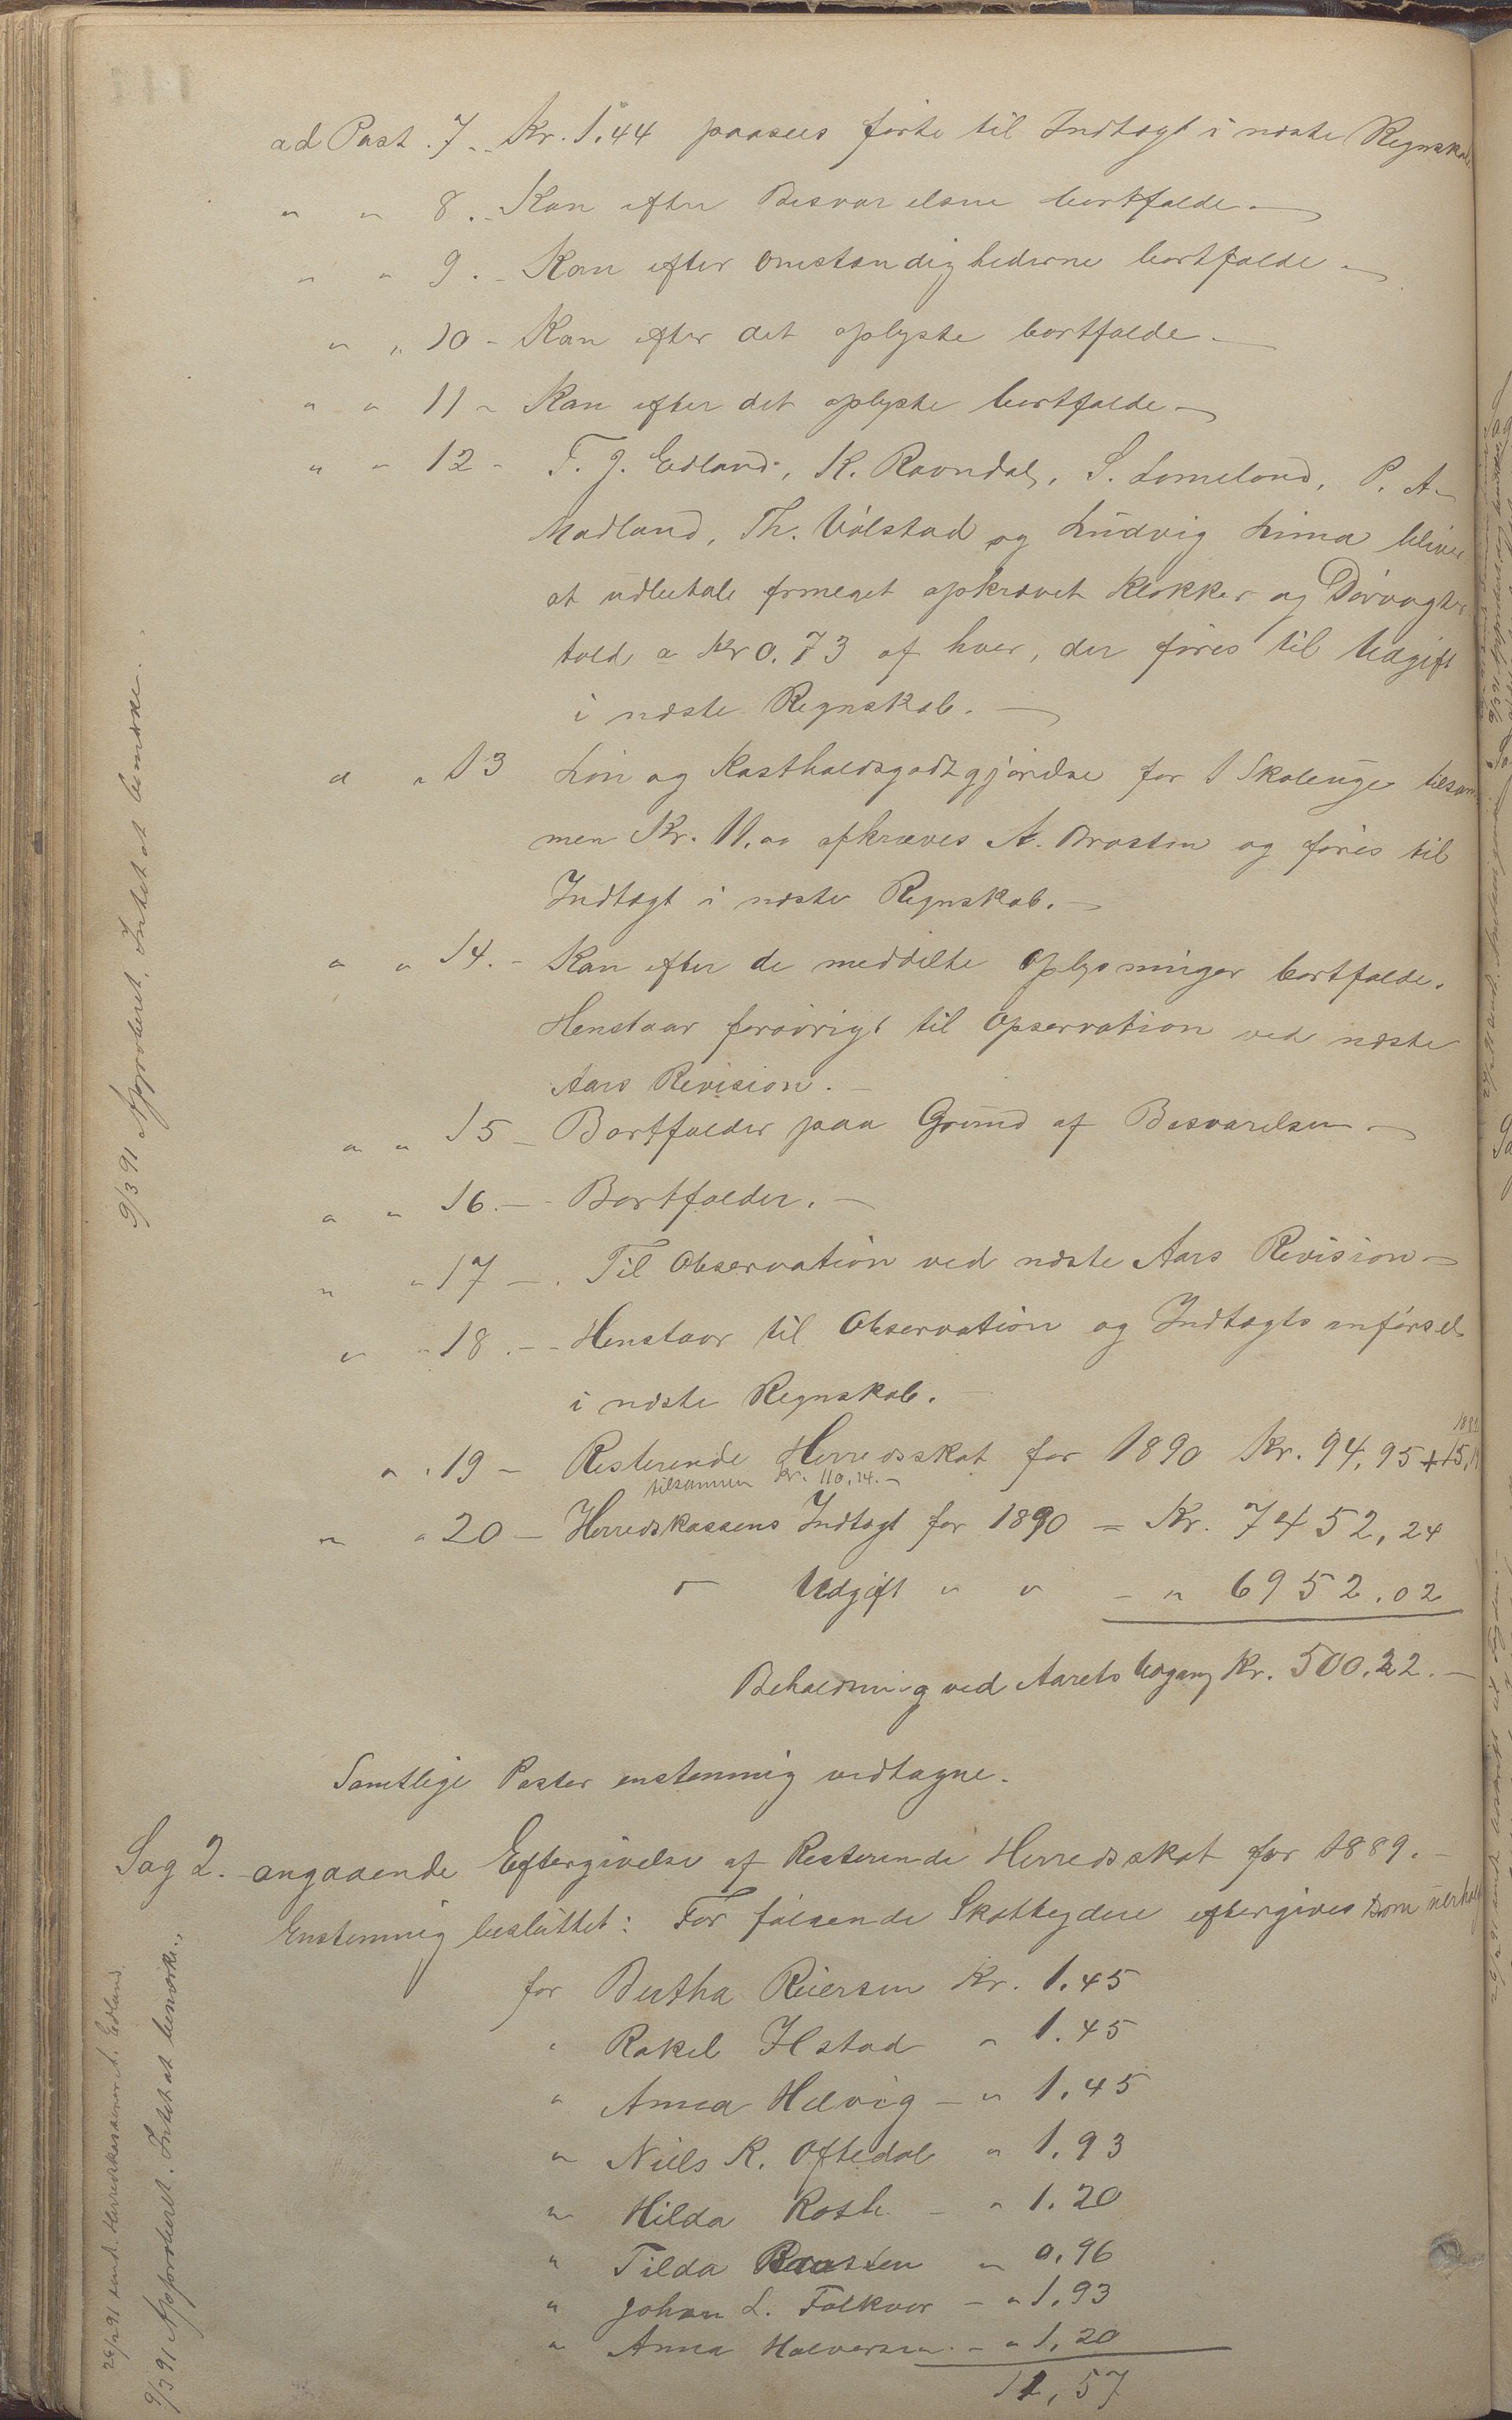 ad Post. 7.- Kr. 1.44 paasees førte til Indtægt i næste Regnskab
" " 8.- Kan efter Besvarelsen bortfalde.-
" " 9.- Kan efter Omstændighederne bortfalde.-
" " 10 - Kan efter det oplyste bortfalde.-
" " 11 - Kan efter det oplyste bortfalde.-
" " 12 - T. J. Edland, K. Ravndal, S. Lomeland, P. A.
Madland, Th. Ualstad og Ludvig Lima bliver
at udbetale formeget opkrævet Klokker og Dørvogter
told a Kr 0.73 af hver, der føres til Udgift
i næste Regnskab.-
" " 13 Løn og Kostholdsgodtgjørelse for 1 Skoleuge tilsam
men Kr. 11.00 afkræves A. Brosten og føres til
Indtægt i næste Regnskab.-
" " 14.- Kan efter de meddelte Oplysninger bortfalde.
Henstaar forøvrigt til Opservation ved næste
Aars Revision.-
" " 15 - Bortfalder paa Grund af Besvarelsen.-
" " 16.- Bortfalder.-
" " 17 -. Til Observation ved næste Aars Revision.-
" " 18.- Henstaar til Observation og Indtægts anførsel
i næste Regnskab.-
" " 19 - Resterende Herredsskat for 1890 Kr. 94,95 + 15,19
tilsammen Kr. 110,14.-
" " 20 - Herredskassens Indtægt for 1890 = Kr. 7452,24
- Udgift " " - " 6952.02
Beholdning ved Aarets Udgang Kr. 500.22.-
Samtlige Poster enstemmig vedtagne.
Sag 2. angaaende Eftergivelse af Resterende Herredsskat for 1889.-
Enstemmig besluttet: For følgende Skatteydere eftergives som uerhol
for Bertha Reiersen Kr. 1.45
" Rakel Ilstad " 1.45
" Anna Helvig - " 1.45
" Niels K. Oftedal " 1.93
" Hilda Kosth - " 1.20
" Tilda Braasten " 0.96
" Johan L. Folkvor - " 1.93
" Anna Halvorsen - " 1.20
11,57
9/3 91 Approberet, Intet at bemærke.
26/2 91 sendt Herredskasserer A. Edland.
9/3 91 Approberet. Intet at bemærke.